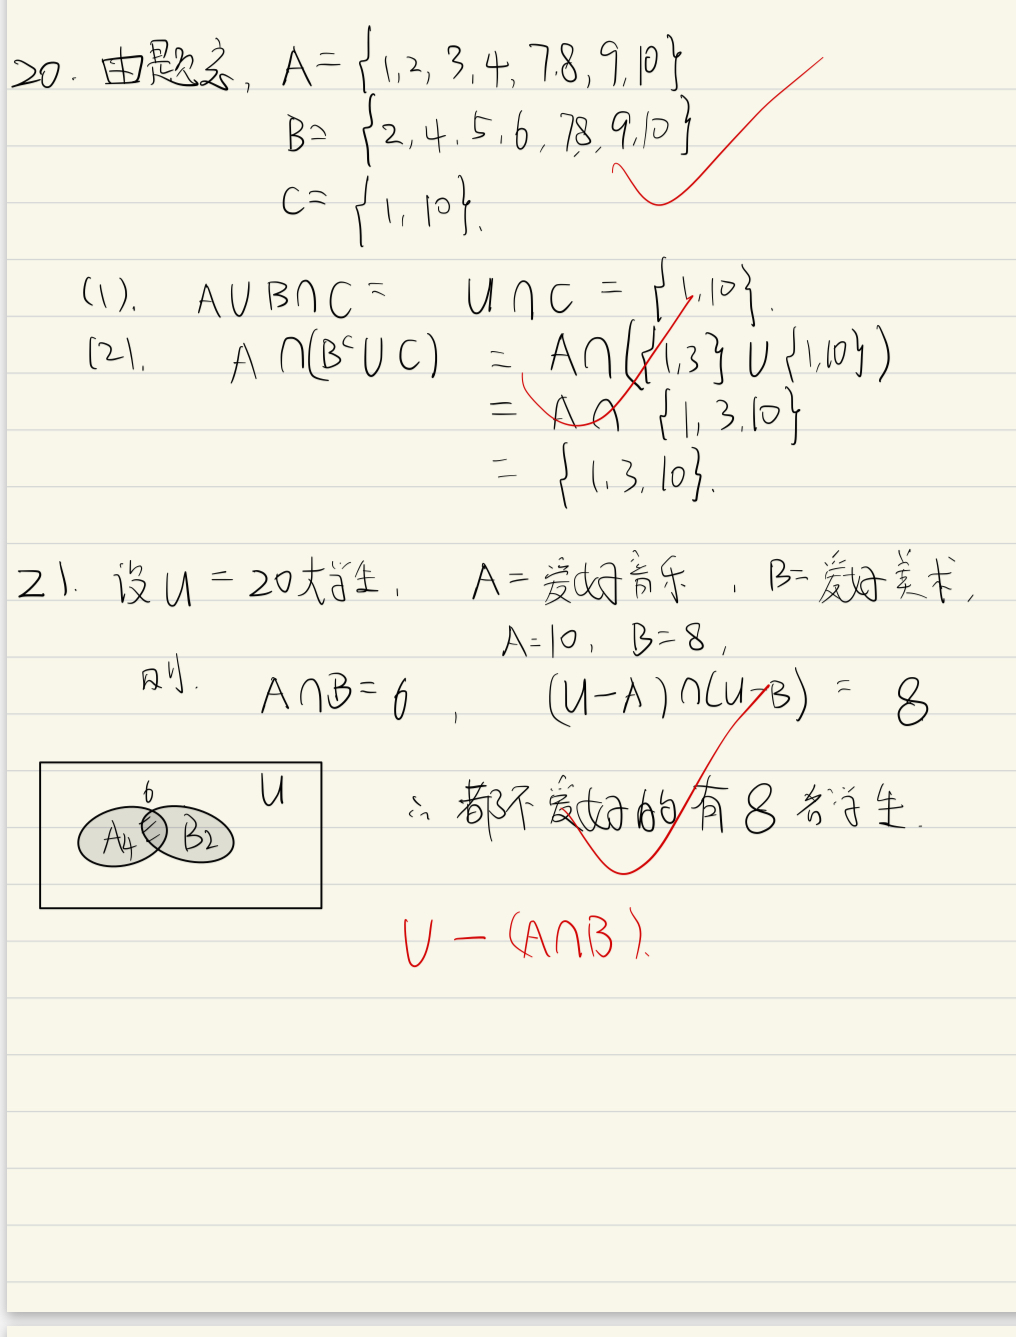 20. 由题意, A={1,2,3,4,7.8,9,10}
B= {2,4.5.6,78,9,10}
C= {1,10}.
(1). A∪B∩C= U∩C = {1,10}.
(2). A∩(Bᶜ∪C) = A∩({1,3}∪{1,10})
= A∩ {1,3.10}
= {1.3.10}.
21. 设U=20大学生, A=爱好音乐, B=爱好美术,
A=10, B=8,
则. A∩B=6, (U-A)∩(U-B) = 8
6 U
A4 B2
∴都不爱好的有8名学生.
U-(A∩B).